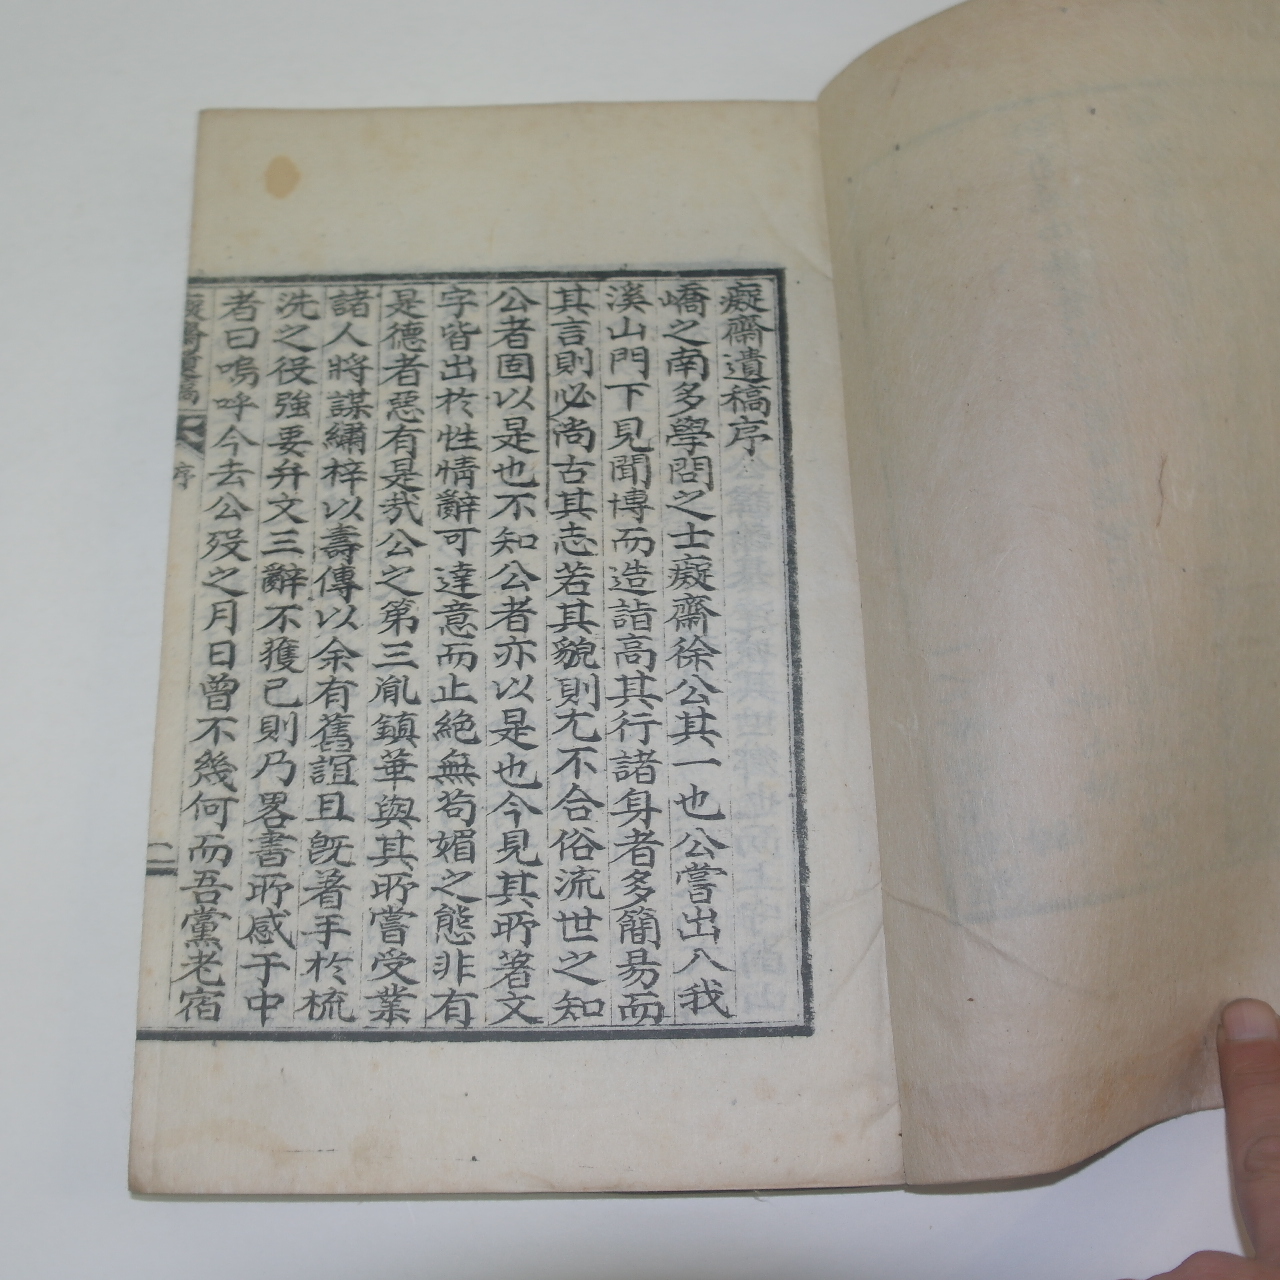 癡齋遺稿序
嶠之南多學問之士癡齋徐公其一也公嘗出入我
溪山門下見聞博而造詣高其行諸身者多簡易而
其言則必尚古其志若其貌則尤不合俗流世之知
公者固以是也不知公者亦以是也今見其所著文
字皆出於性情辭可達意而止絶無苟媚之態非有
是德者惡有是㢤公之第三胤鎮華與其所嘗受業
諸人將謀繡梓以壽傳以余有舊誼且旣著手於梳
洗之役強要弁文三辭不獲已則乃畧書所感于中
者曰嗚呼今去公殁之月日曾不幾何而吾黨老宿
癡齋遺稿 序 一